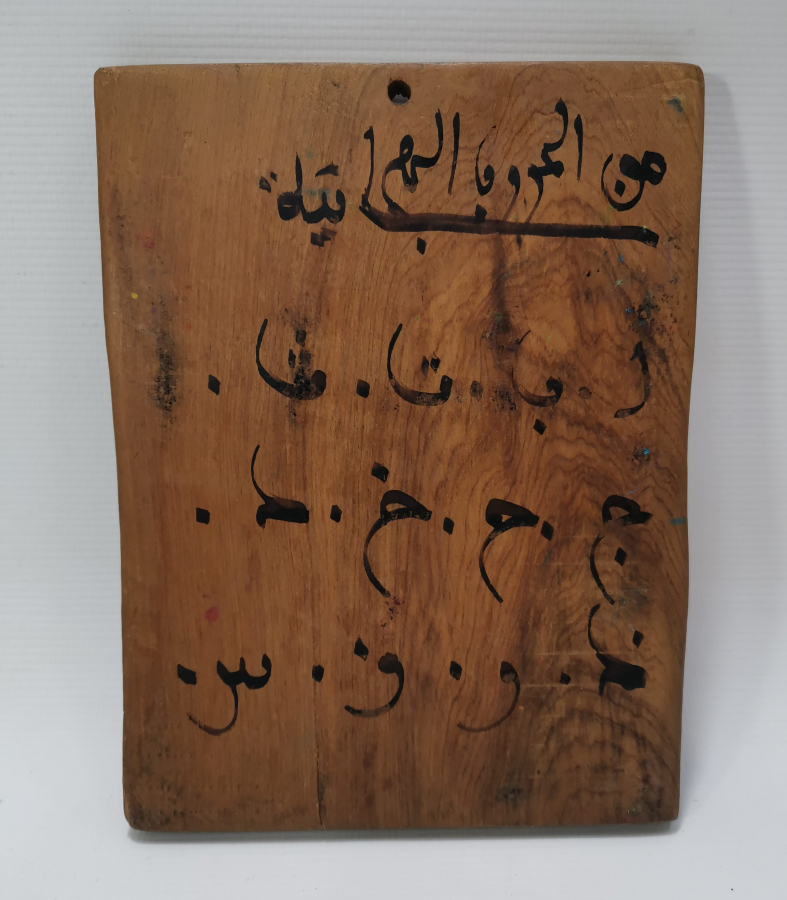 من الحروف الهجائية
ا . ب . ت . ث .
ج . ح . خ . د .
ذ . ر . ز . س .